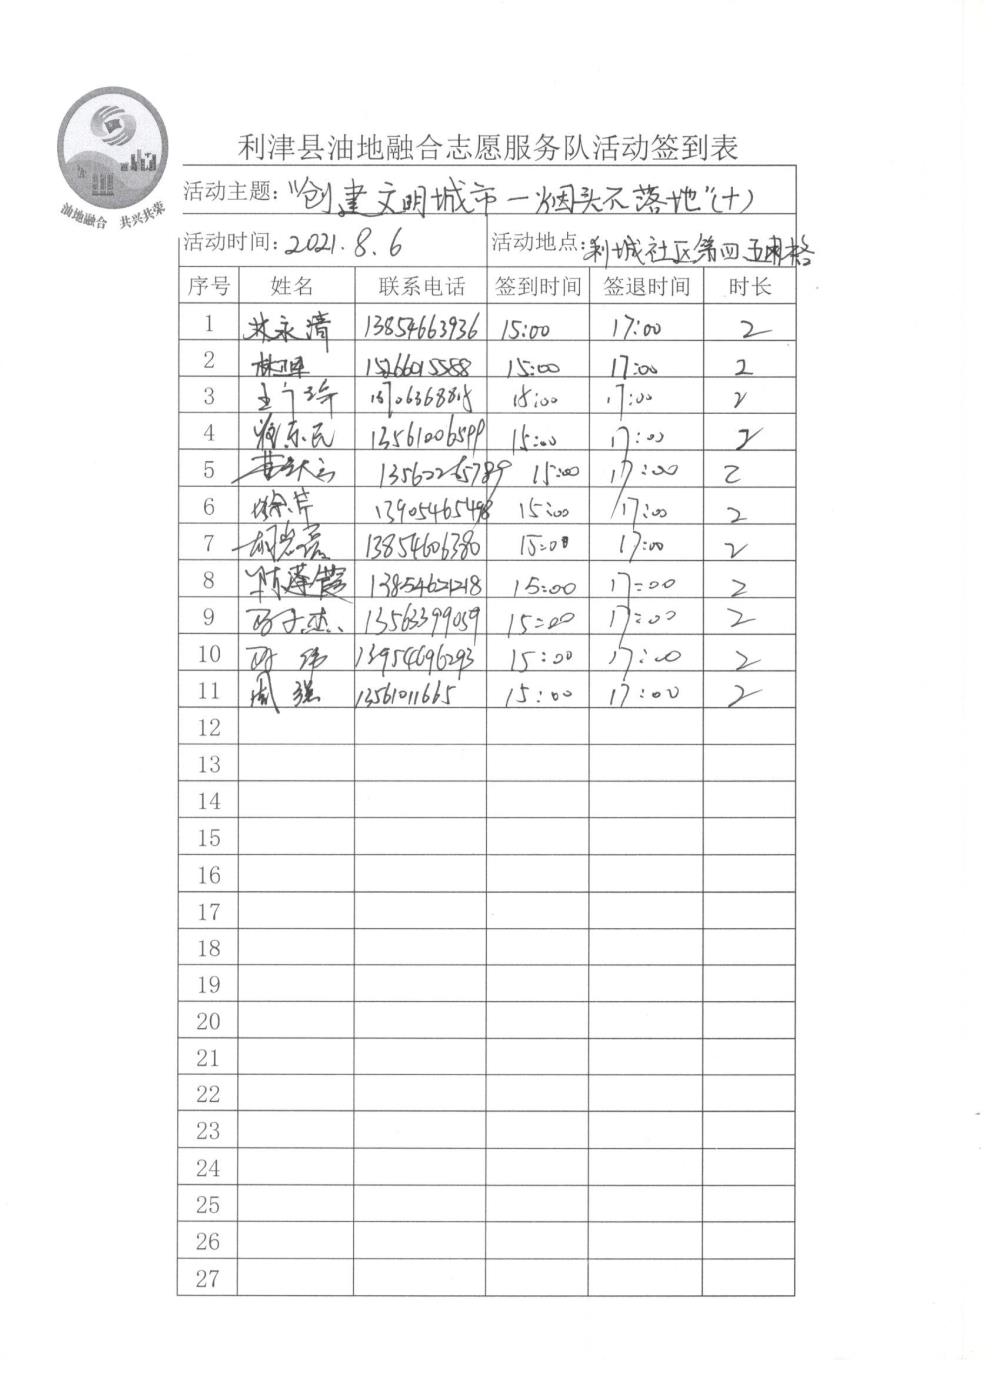 利津县油地融合志愿服务队活动签到表
油地融合 共兴共荣
活动主题："创建文明城市一烟头不落地"(十)
活动时间：2021.8.6 活动地点：利城社区第四五网格
序号 姓名 联系电话 签到时间 签退时间 时长
1 林永清 13854663936 15:00 17:00 2
2 15266015588 15:00 17:00 2
3 15:00 17:00 2
4 13561006599 15:00 17:00 2
5 13562265789 15:00 17:00 2
6 徐芹 13905465498 15:00 17:00 2
7 13854606380 15:00 17:00 2
8 陈莲霞 13854621218 15:00 17:00 2
9 13563399059 15:00 17:00 2
10 13954696293 15:00 17:00 2
11 周强 13561011665 15:00 17:00 2
12
13
14
15
16
17
18
19
20
21
22
23
24
25
26
27